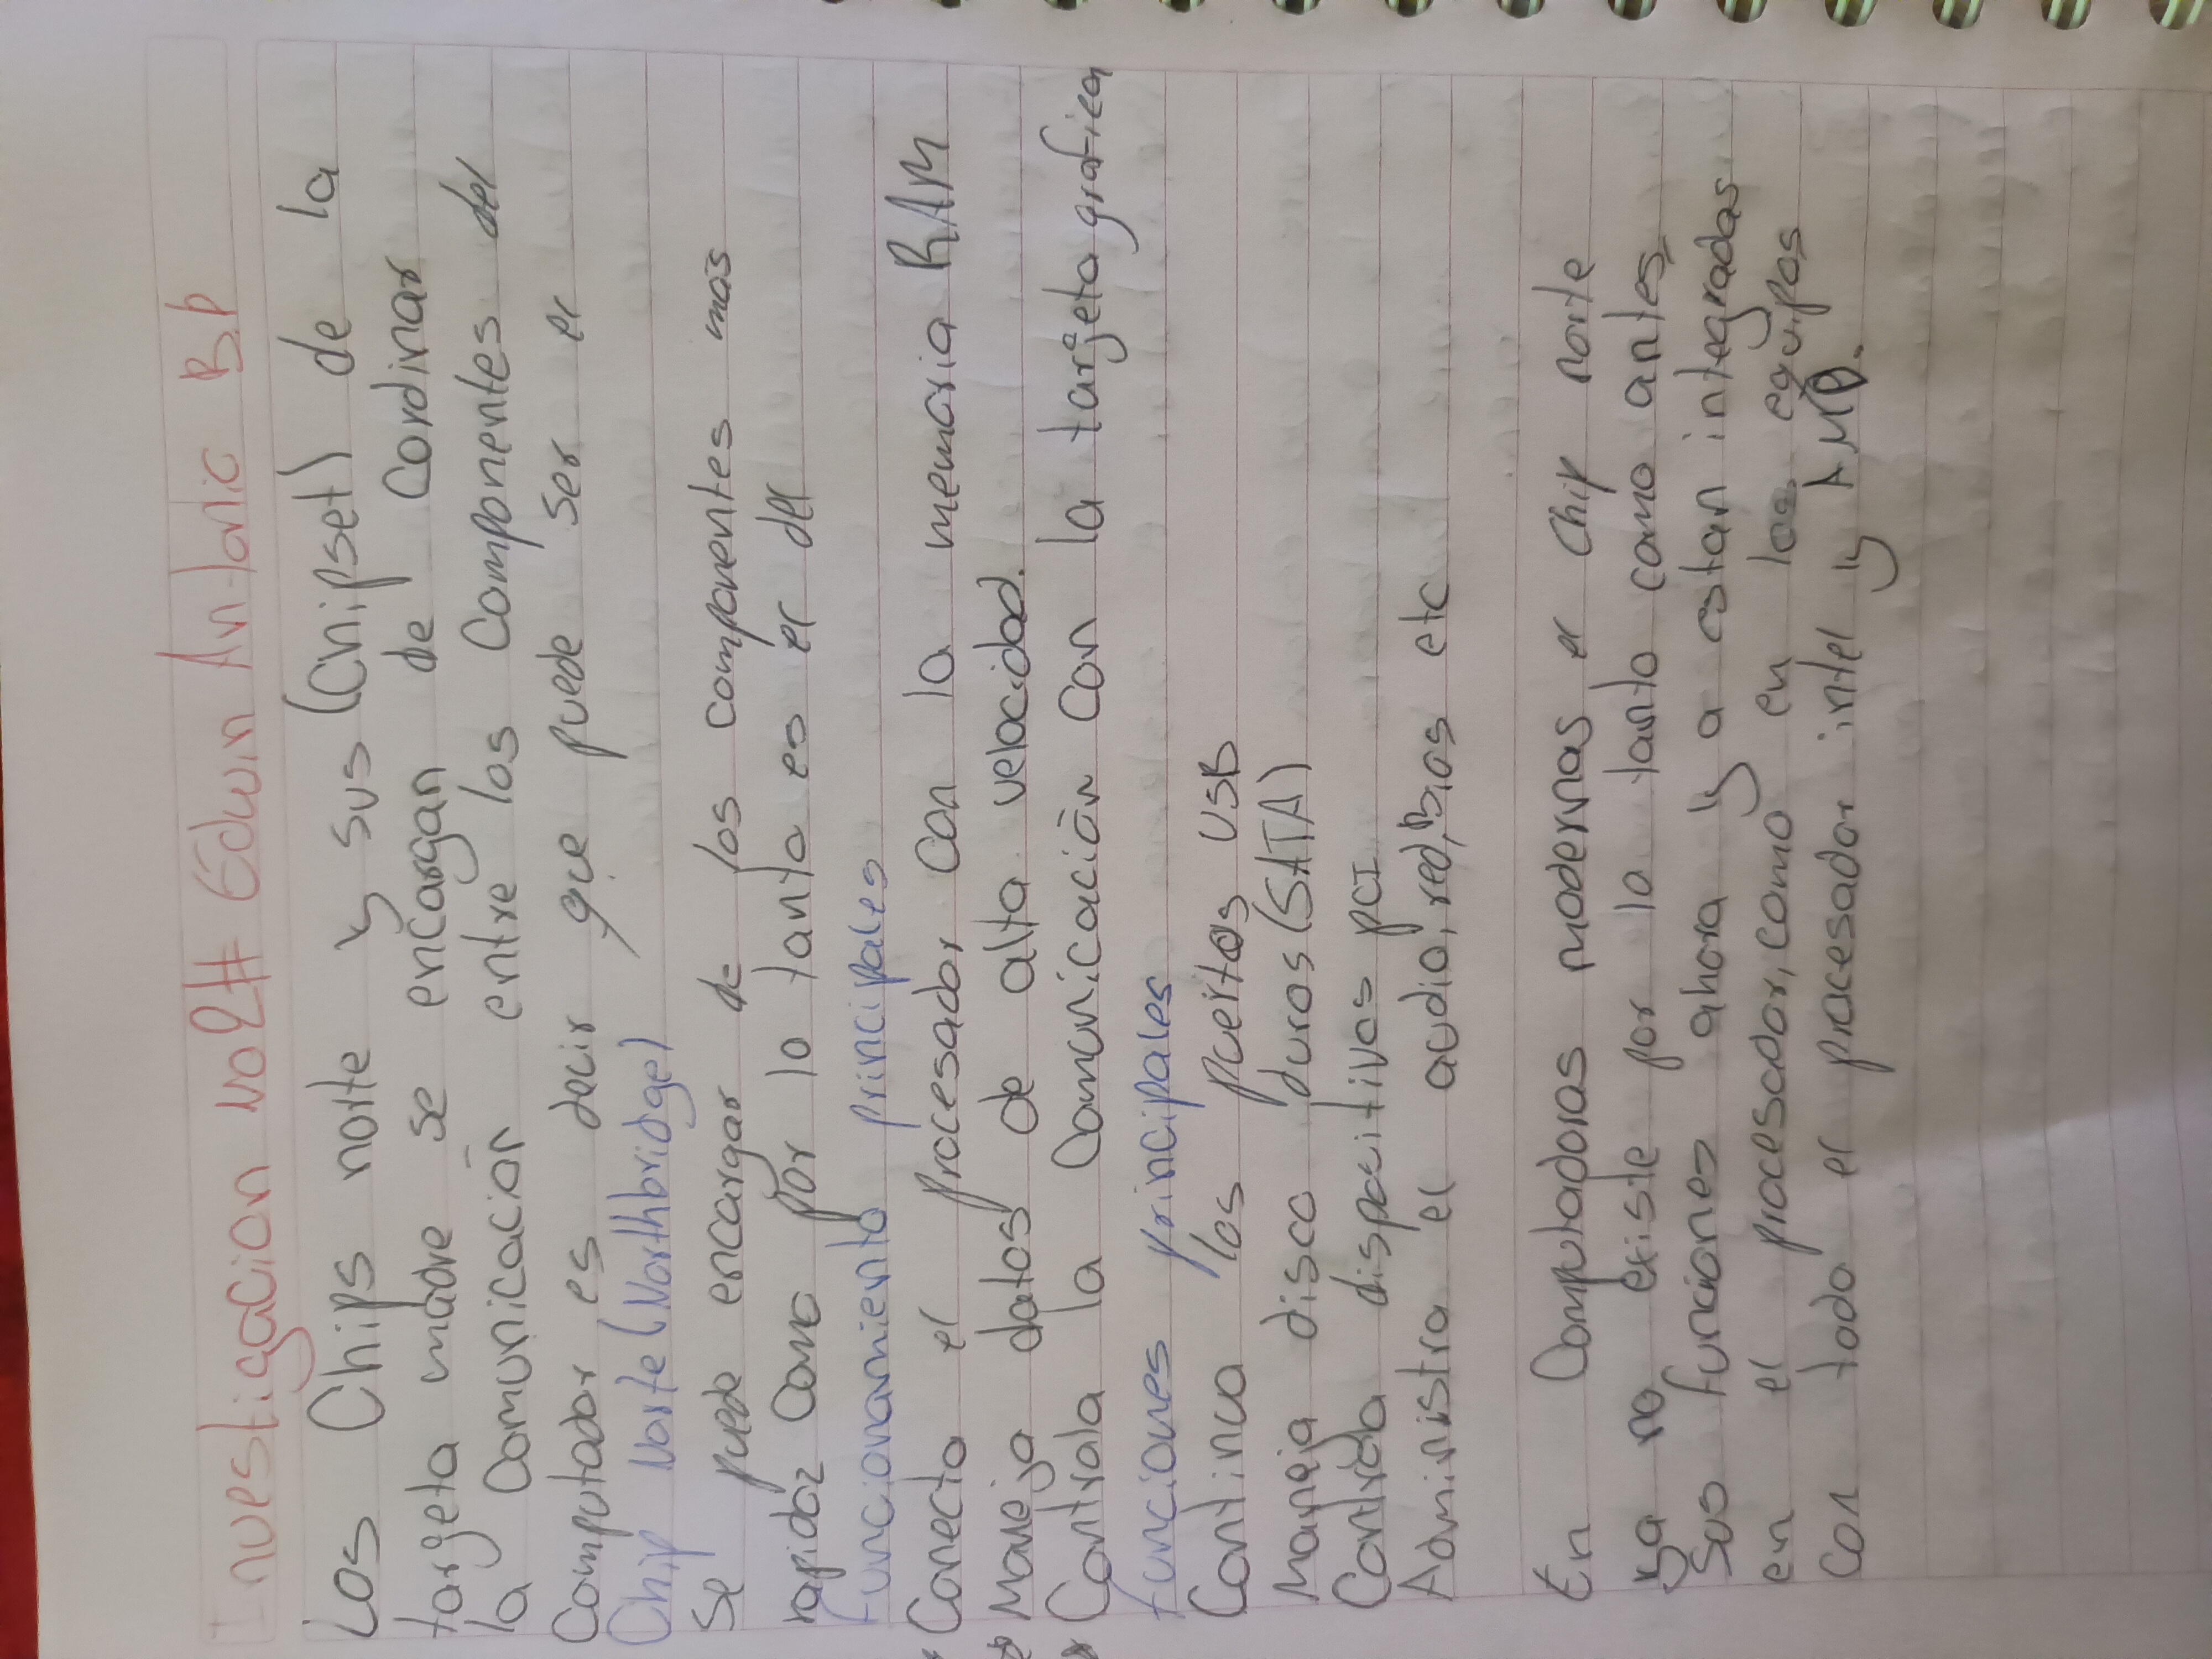 Investigacion No2# Edwin Antonio B.P
Los Chips norte y sus (Chipset) de la
targeta madre se encargan de Cordinar
la Comunicación entre los Componentes del
Computador es decir que puede ser el
Chip Norte (Northbridge)
Se puede encargar de los componentes mas
rapidoz Como por lo tanto es el del
funcionamiento principales
Conecta el procesador con la memoria RAM
Maneja datos de alta velocidad.
Contrala la Comunicación con la tarjeta grafica
funciones principales
Continua los puertos USB
Maneja disco duros (SATA)
Controla dispocitivos PCI
Administra el audio, red, Bios etc
En Computadoras modernas el Chip norte
ya no existe por lo tanto como antes,
Sus funciones ahora y a estan integradas
en el procesador, como en los equipos
Con todo el procesador intel y AMD.